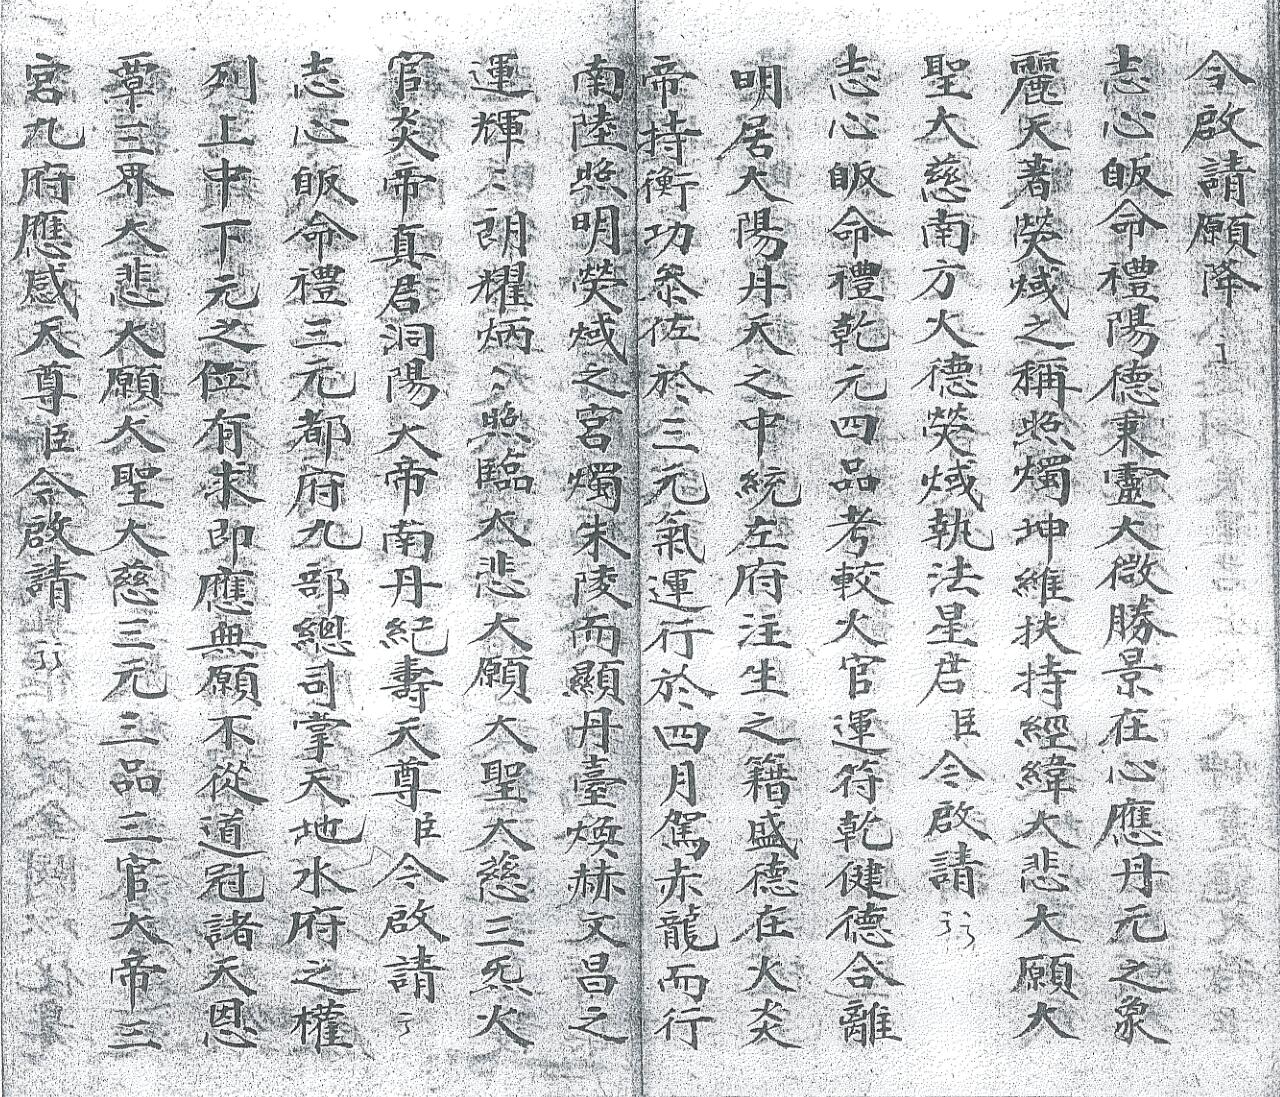 今啟請願降
志心皈命禮陽德秉靈大微勝景在心應丹元之象
麗天著熒惑之稱照燭坤維扶持經緯大悲大願大
聖大慈南方火德熒惑執法星君臣今啟請
志心皈命禮乾元四品考較火官運符乾健德合離
明居大陽丹天之中統左府注生之籍盛德在火炎
帝持衡功叅佐於三元氣運行於四月駕赤龍而行
南陸照明熒惑之宮燭朱陵而顯丹臺煥赫文昌之
運輝〻朗耀炳〻照臨大悲大願大聖大慈三炁火
官炎帝真君洞陽大帝南丹紀壽天尊臣今啟請
志心皈命禮三元都府九部緫司掌天地水府之權
列上中下元之位有求即應無願不從道冠諸天恩
覃三界大悲大願大聖大慈三元三品三官大帝三
宮九府應感天尊臣今啟請